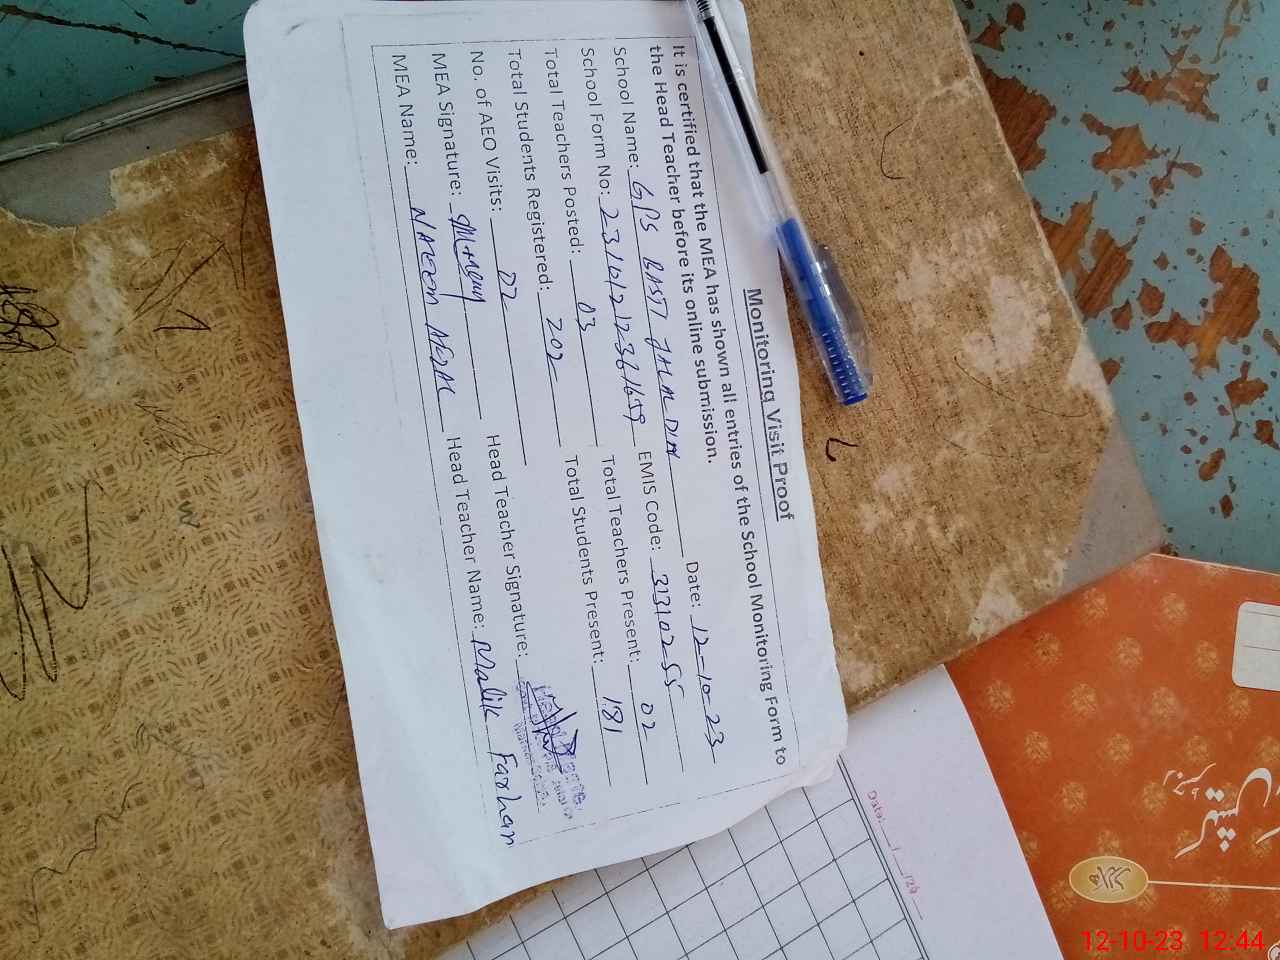 Monitoring Visit Proof
It is certified that the MEA has shown all entries of the School Monitoring Form to
the Head Teacher before its online submission.
School Name: GPS BASTI JALAL DIN Date: 12-10-23
School Form No: EMIS Code: 32310255
Total Teachers Posted: 03 Total Teachers Present: 02
Total Students Registered: 202 Total Students Present: 181
No. of AEO Visits: 02
MEA Signature: Head Teacher Signature:
MEA Name: NAEEM Head Teacher Name: Malik Farhan
Date:
12-10-23 12:44